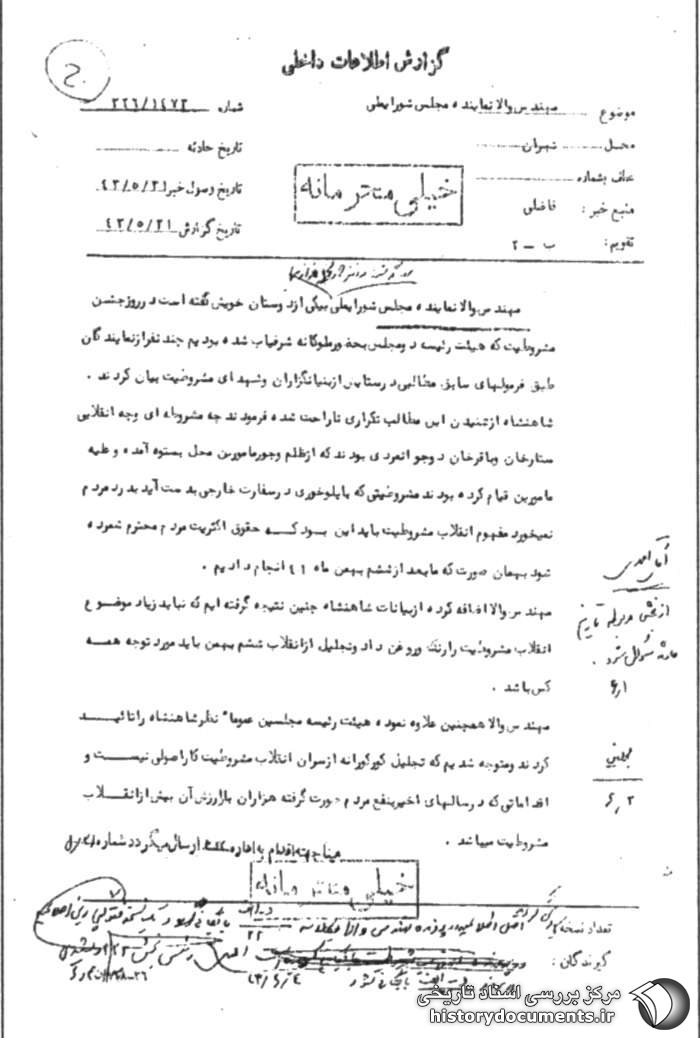 گزارش اطلاعات داخلی
موضوع مهندس والا نماینده مجلس شورایملی
شماره ۳۲۶/۱۴۷۳
محل شمیران
تاریخ حادثه
عطف بشماره
خیلی محترمانه
تاریخ وصول خبر ۴۲/۵/۲۱
منبع خبر : فاضلی
تاریخ گزارش ۴۲/۵/۲۱
تقویم : ب – ۲
مهندس والا نماینده مجلس شورایملی بیکی از دوستان خویش گفته است در روز جشن
مشروطیت که هیئت رئیسه دو مجلس بحضور ملوکانه شرفیاب شده بودیم چند نفر از نمایندگان
طبق فرمولهای سابق مطالبی در ستایش از بنیانگزاران و شهدای مشروطیت بیان کردند .
شاهنشاه از شنیدن این مطالب تکراری ناراحت شده فرمودند چه مشروطه ای و چه انقلابی
ستارخان و باقرخان دو جوانمردی بودند که از ظلم و جور مامورین محل بستوه آمده و علیه
مامورین قیام کرده بودند مشروطیتی که با پلوخوری در سفارت خارجی بدست آید بدرد مردم
نمیخورد مفهوم انقلاب مشروطیت باید این بود که حقوق اکثریت مردم محترم شمرده
شود بهمان صورت که ما بعد از ششم بهمن ماه ۴۱ انجام دادیم .
مهندس والا اضافه کرده از بیانات شاهنشاه چنین نتیجه گرفته ایم که نباید زیاد موضوع
انقلاب مشروطیت را رنگ و روغن داد و تجلیل از انقلاب ششم بهمن باید مورد توجه همه
کس باشد .
مهندس والا همچنین علاوه نموده هیئت رئیسه مجلسین عموما" نظر شاهنشاه را تائید
کردند و متوجه شدیم که تجلیل کورکورانه از سران انقلاب مشروطیت کار اصولی نیست و
اقداماتی که در سالهای اخیر بنفع مردم صورت گرفته هزاران بار ارزش آن بیش از انقلاب
مشروطیت میباشد .
عینا جهت اقدام به اداره کل ارسال میگردد شماره
آقای احمدی
از بخش مربوطه تاریخ
حادثه سوال شود .
۶/۱
مجلسین
۶/۲
خیلی محترمانه
تعداد نسخه
گیرندگان :
بایگانی کشور ۴۲/۶/۴
مرکز بررسی اسناد تاریخی
historydocuments.ir